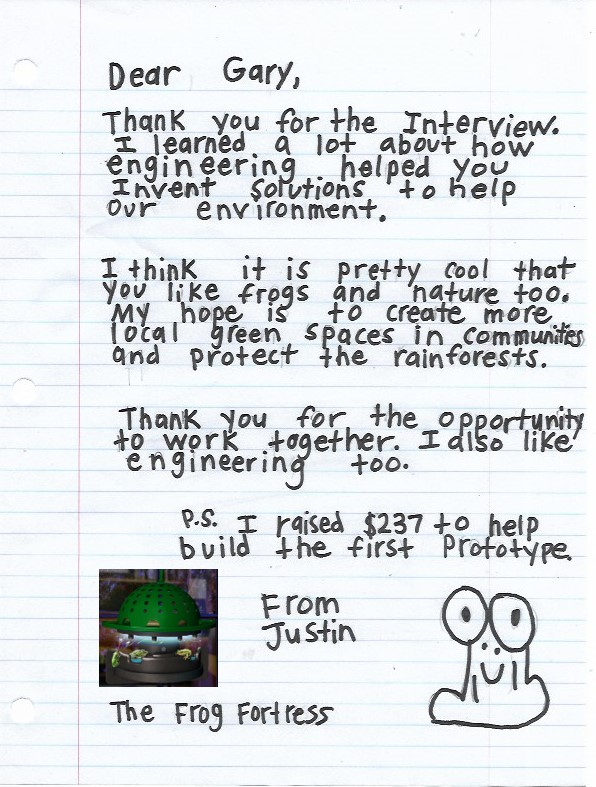 Dear Gary,
Thank you for the Interview.
I learned a lot about how
engineering helped you
Invent solutions to help
our environment.
I think it is pretty cool that
you like frogs and nature too.
My hope is to create more
local green spaces in communities
and protect the rainforests.
Thank you for the opportunity
to work together. I also like
engineering too.
P.S. I raised $237 to help
build the first Prototype.
From
Justin
The Frog Fortress